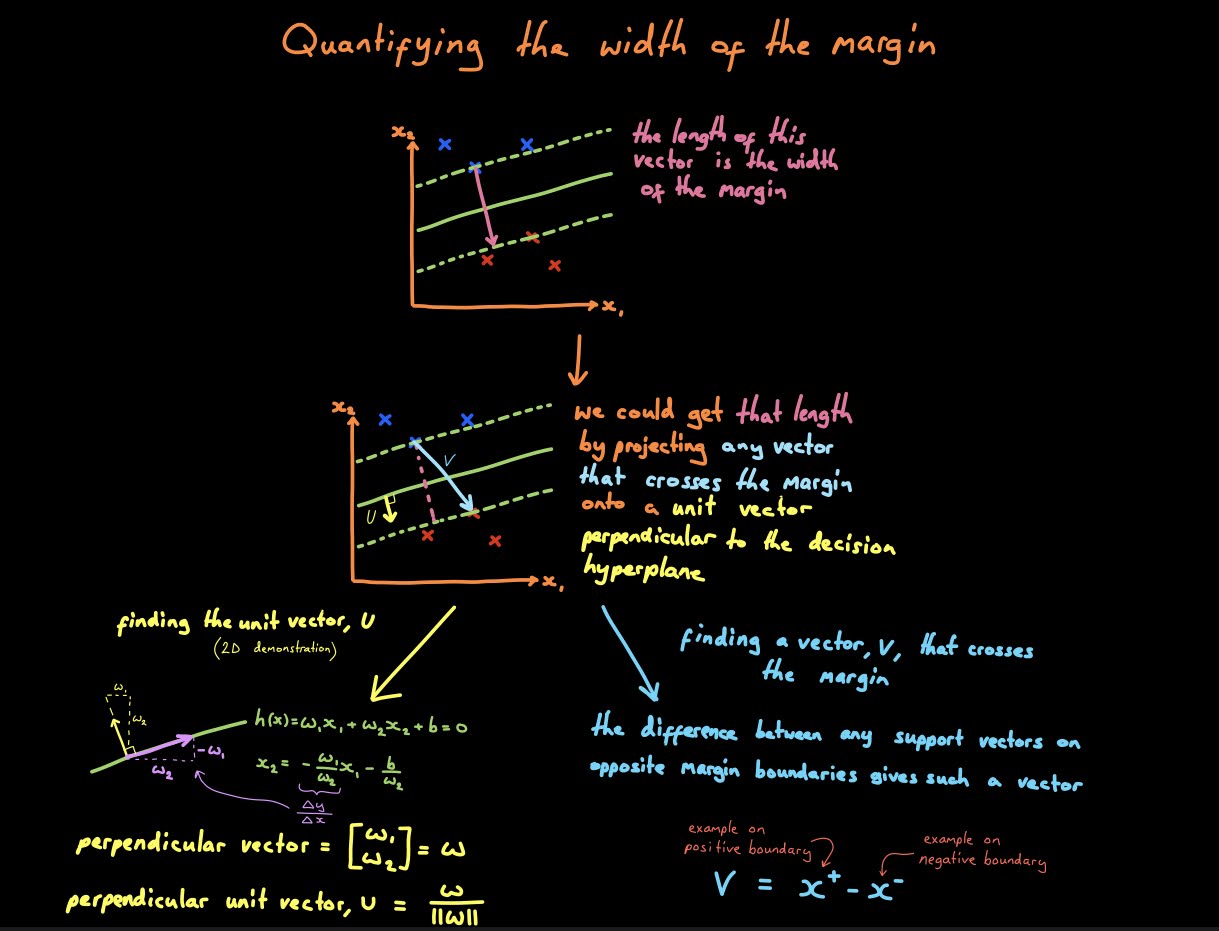 Quantifying the width of the margin
x₂
the length of this
vector is the width
of the margin
x₁
x₂
we could get that length
by projecting any vector
that crosses the margin
onto a unit vector
perpendicular to the decision
hyperplane
V
U
x₁
finding the unit vector, U
(2D demonstration)
ω₁
ω₂
-ω₁
ω₂
h(x)=ω₁x₁+ω₂x₂+b=0
x₂ = -ω₁/ω₂ x₁ - b/ω₂
Δy/Δx
perpendicular vector = [ω₁ ω₂] = ω
perpendicular unit vector, U = ω/||ω||
finding a vector, V, that crosses
the margin
the difference between any support vectors on
opposite margin boundaries gives such a vector
example on
positive boundary
example on
negative boundary
V = x⁺ - x⁻